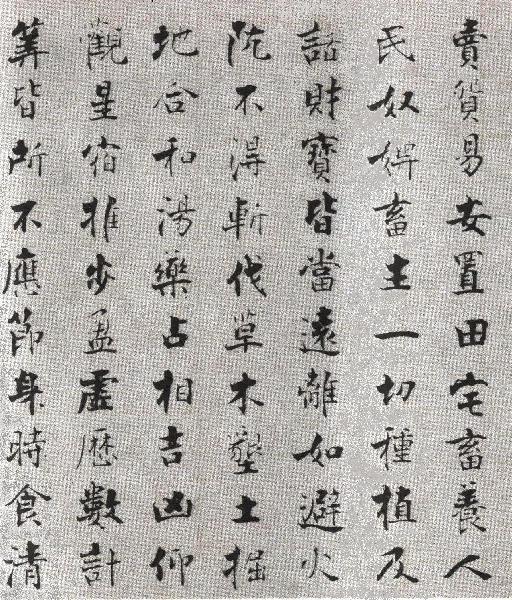 賣貨易安置田宅畜養人
民奴婢畜生一切種植及
諸財寶皆當遠離如避火
阬不得斬伐草木墾土掘
地合和湯藥占相吉凶仰
觀星宿推步盈虛曆數計
筭皆所不應節身時食清